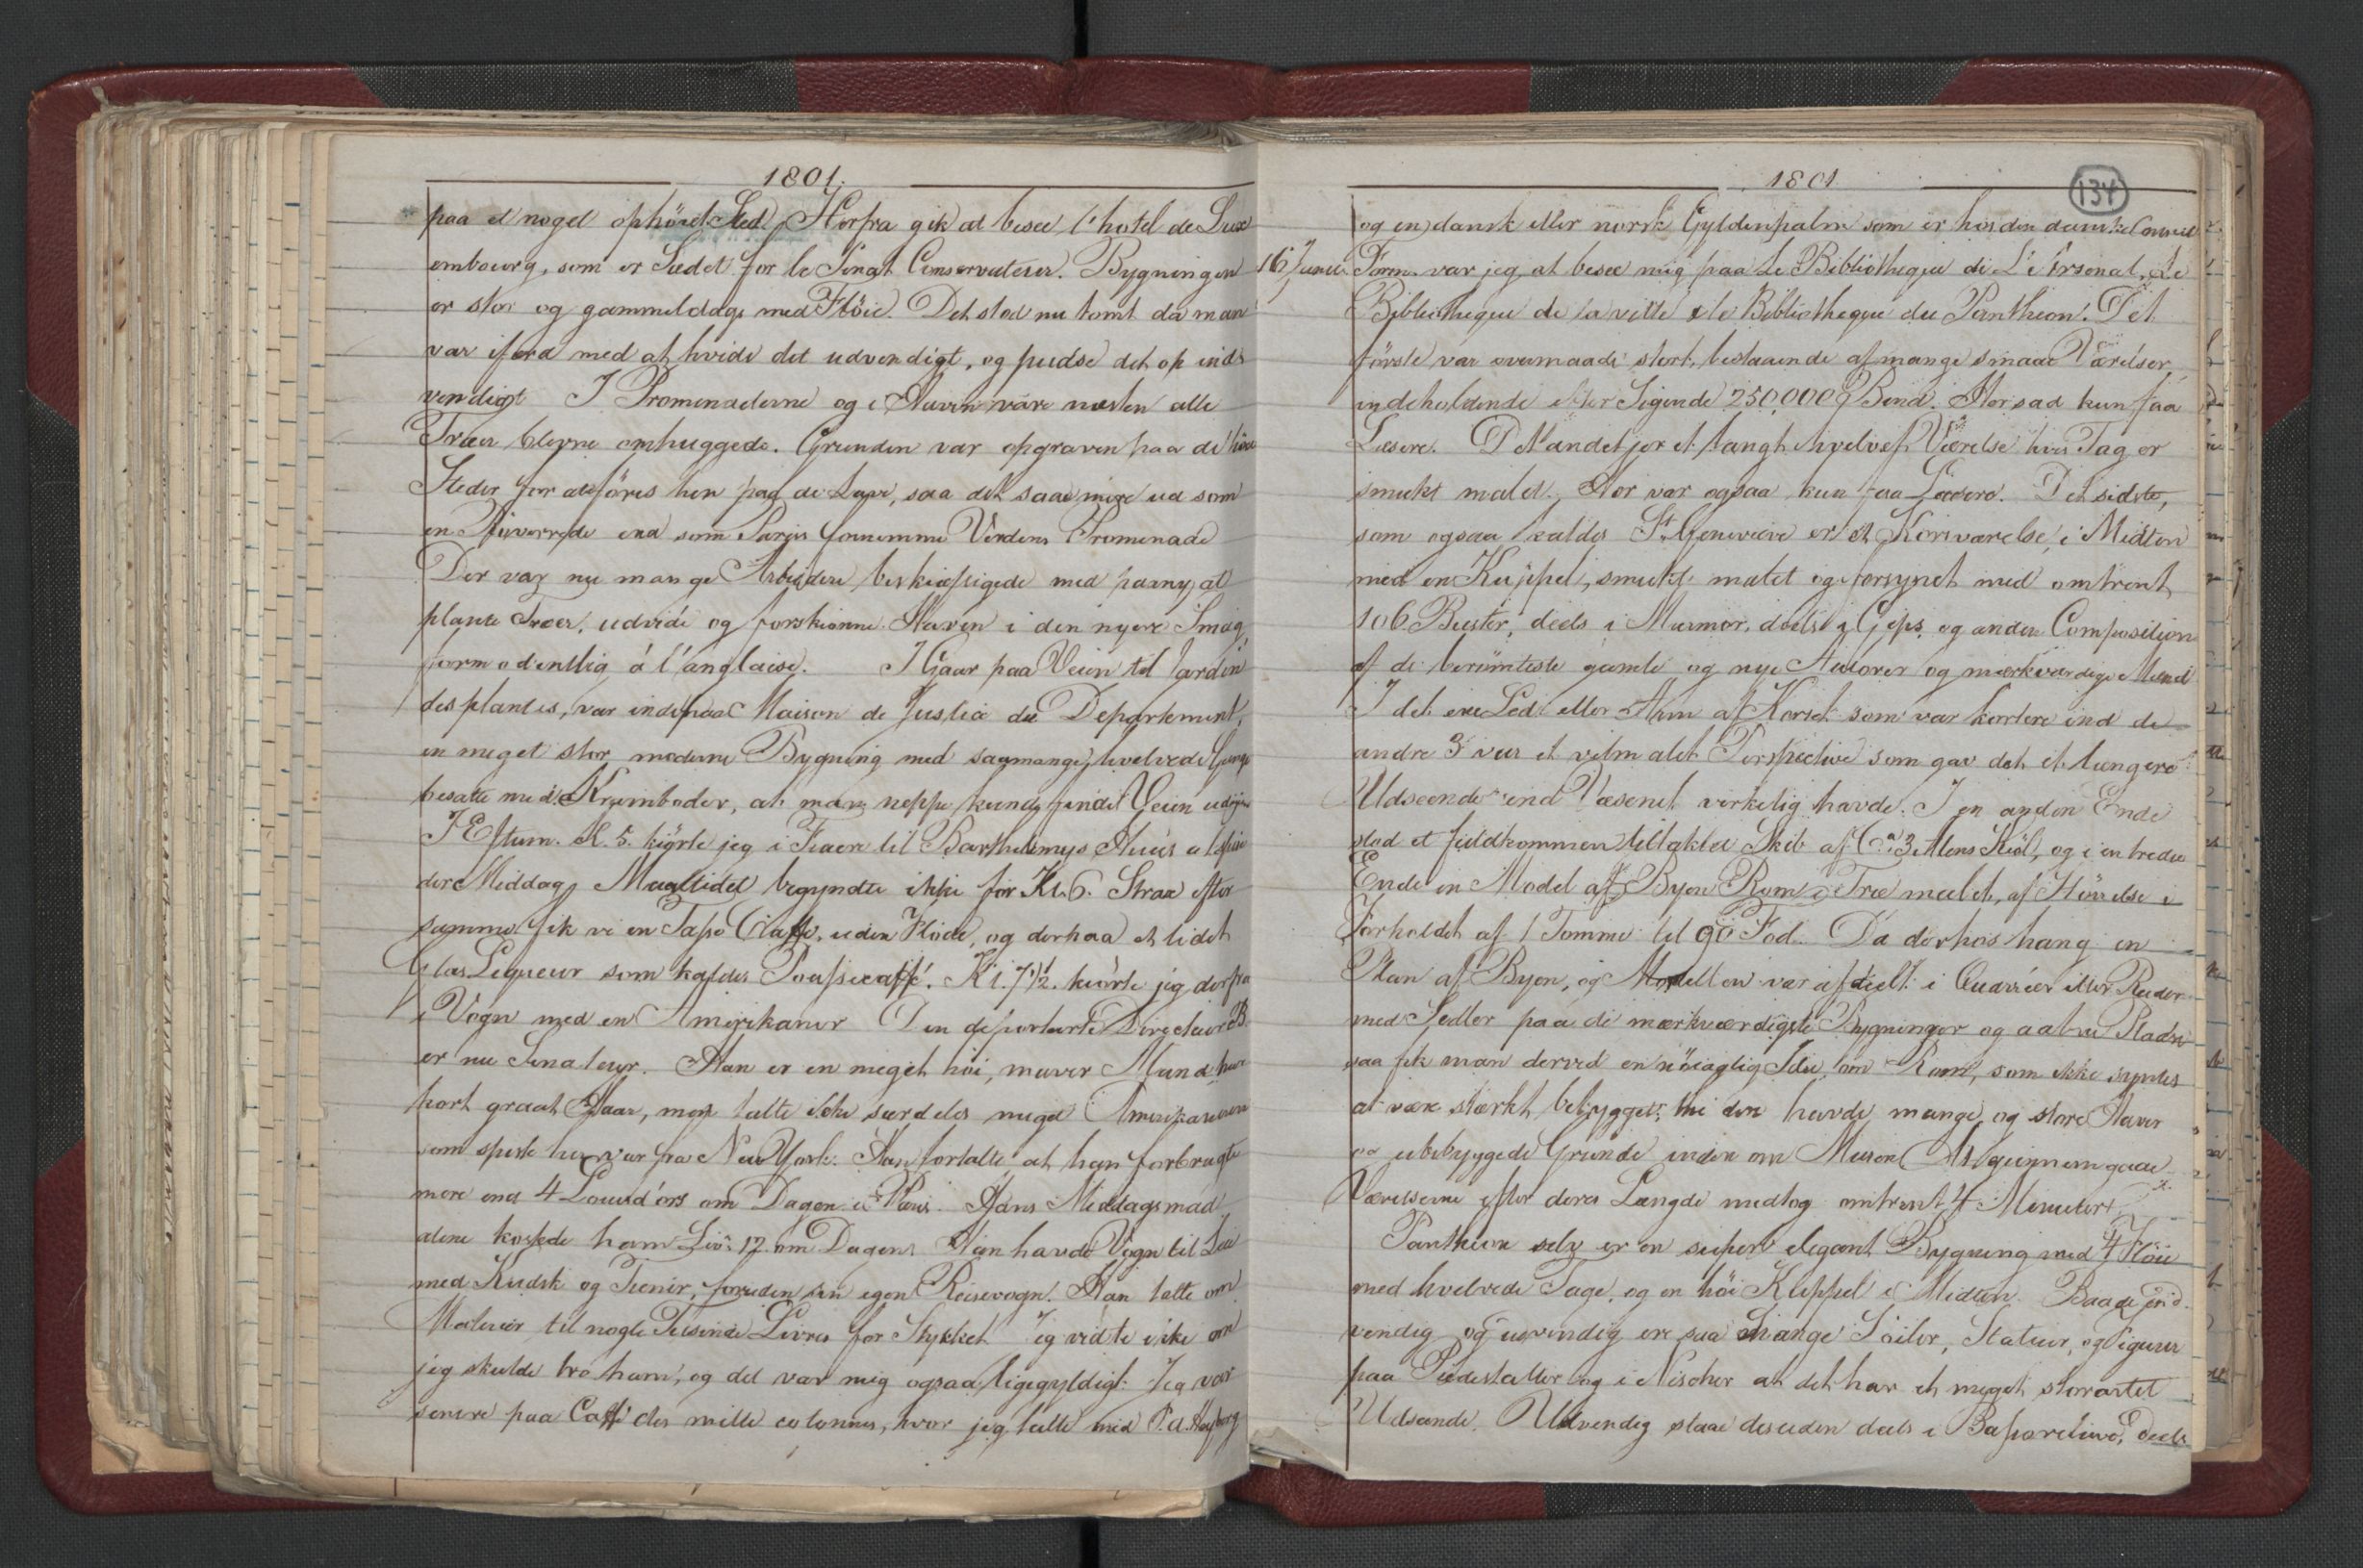 1801.
paa et noget ophöiet Sted. Herfra gik at besee l'hotel de Lux
embourg, som er Sædet for le Senat Conservateur. Bygningen
er stor og gammeldags med Flöie. Det stod nu tomt da man
var ifærd med at hvide det udvendigt, og pudse det op ind
vendigt I Promenaderne og i Haven vare næsten alle
Træer blevne omhuggede. Grunden var opgraven paa de höie
Steder for at föres hen paa de Lave, saa det saae mere ud som
en  end som Pariss fornemme Verdens Promenade
Der var nu mange Arbeidere beskiæftigede med paany at
plante Træer, udvide og forskiönne Haven i den nyere Smag,
formodentlig á l'anglaise. I Gaar paa Veien til Jardin
des plantes, var inde paa Maison de Justice du Departement,
en meget stor moderne Bygning med saa mange hvelvede Gange
besatte med Kramboder, at man neppe kunde finde Veien ud igien
I Efterm. Kl. 5. kiörte jeg i Fiacre til Barthelemys Huus at spise
der Middag Maaltidet begyndte ikke för Kl. 6. Strax efter
samme fik vi en Tasse Caffe, uden Flöde, og derpaa et lidet
Glas Liqueur som kaldes Poussecaffé. Kl. 7 1/2. kiörte jeg derfra
i Vogn med en Amerikaner Den deporterte Directeur B
er nu Senateur. Han er en meget höi, maver Mand, har
kort graat Haar, men talte ikke særdeles meget Amerikaneren
som spiste her var fra New York. Han fortalte at han forbrugte
mere end 4 Louisd'ors om Dagen i Paris. Hans Middagsmad
alene kostede ham Liv: 12 om Dagen. Han havde Vogn til Leie
med Kudsk og Tiener, foruden sin egen Reisevogn. Han talte om
Malerier til nogle Tusinde Livres for Stykket Jeg vidste ikke om
jeg skulde troe ham, og det var mig ogsaa ligegyldigt. Jeg var
senere paa Caffé des mille colonnes, hvor jeg talte med P. A. Heyberg
1801
134
(og en) dansk eller norsk Gyldenpalm som er hos den danske Consul
16 Junii Form. var jeg at besee mig paa Le Bibliotheque de L'Arsenal, Le
Bibliotheque de la ville & le Bibliotheque du Pantheon. Det
förste var overmaade stort, bestaaende af mange smaae Værelser,
indeholdende efter Sigende 250,000 Bind. Her sad kun faa
Læsere. Det andet er et langt hvelvet Værelse hvis Tag er
smukt malet. Her var ogsaa kun faa Læsere. Det sidste,
som ogsaa kaldes St. Genevieve er et Korsværelse, i Midten
med en Kuppel, smukt malet og forsynet med omtrent
106 Buster, deels i Marmor, deels i Gips og anden Composition
af de berömteste gamle og nye Autorer og mærkværdige Mænd
I det ene Led eller Arm af Korset som var kortere end de
andre 3 var et vel malet Perspective som gav det et længere
Udseende end Væsenet virkelig havde. I en anden Ende
stod et fuldkommen tiltaklet Skib af Ca 3 Alens Kiöl, og i en tredie
Ende en Model af Byen Rom i Træ malet, af Störrelse i
Forholdet af 1 Tomme til 90 Fod. Da derhos hang en
Plan af Byen, og Modellen var afdeelt i Quarréer eller Ruder
med Sedler paa de mærkværdigste Bygninger og aabne Pladse
saa fik man derved en nöiagtig Idee om Rom, som ikke syntes
at være stærkt bebygget, thi den havde mange og store Haver
og ubebyggede Grunde inden om Muren At giennemgaae
Værelserne efter deres Længde medtog omtrent 4 Minuter.
Pantheon selv er en superb elegant Bygning med 4 Flöie
med hvelvede Tage, og en höi Kuppel i Midten. Baade ind-
vendig og udvendig ere saa mange Söiler, Statuer, og Figurer
paa Piedestaller og i Nischer at det har et meget storartet
Udseende. Udvendig staae desuden deels i Basrelieve, deels